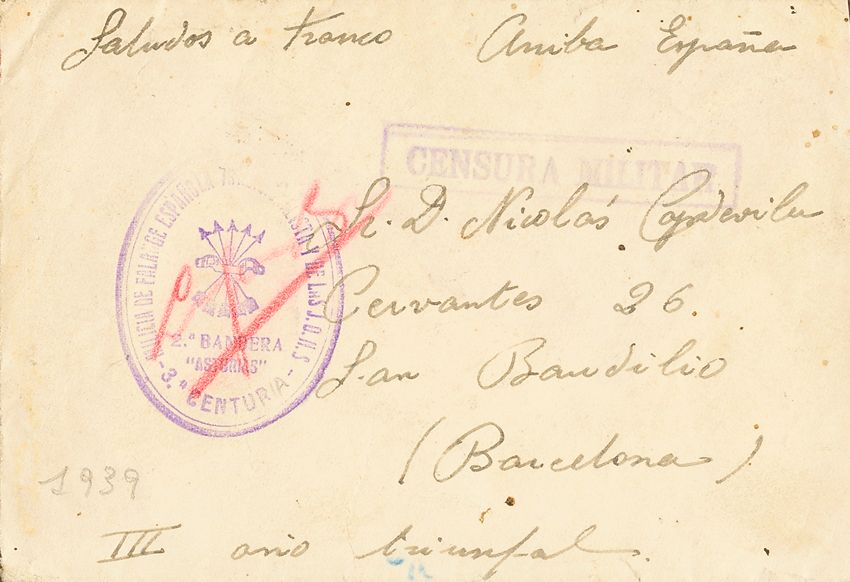 Saludos a Franco Arriba España
CENSURA MILITAR
MILICIA DE FALANGE ESPAÑOLA TRADICIONALISTA Y DE LAS J.O.N.S
2.ª BANDERA
"ASTURIAS"
- 3.ª CENTURIA -
Sr. D. Nicolás Capdevila
Cervantes 26
San Baudilio
(Barcelona)
1939
III año triunfal.